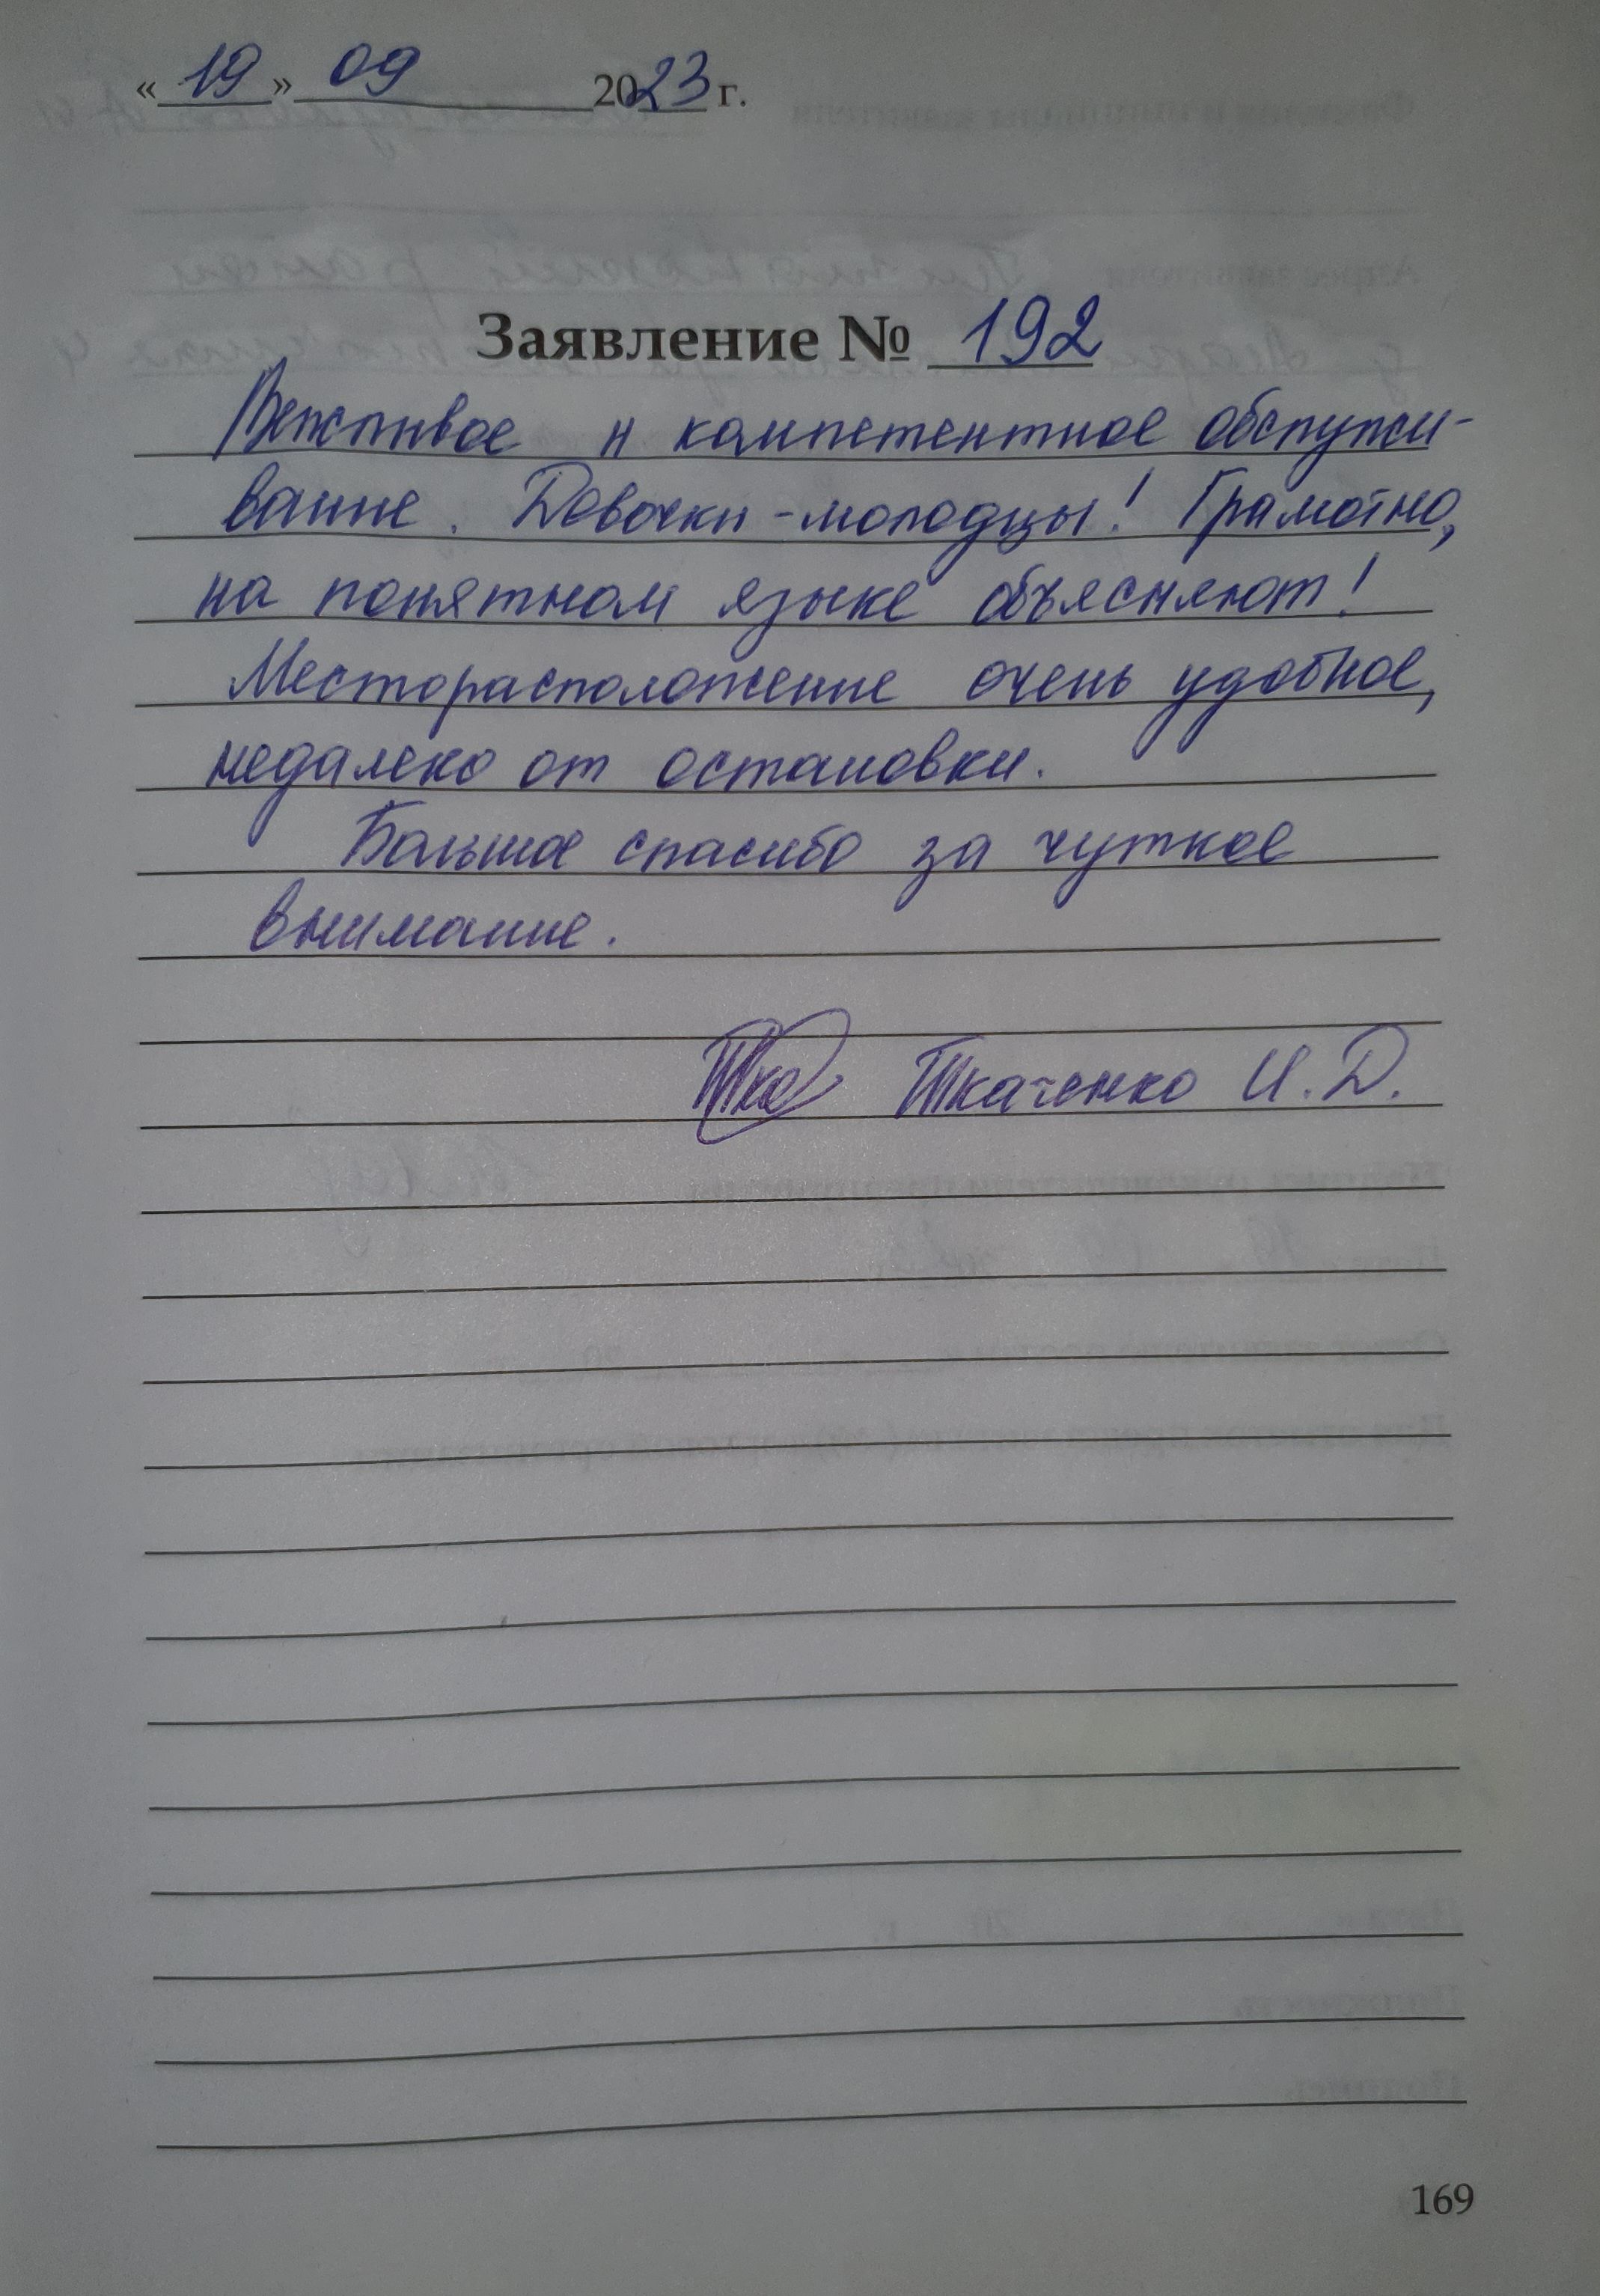 « 19 » 09 2023 г.
Заявление № 192
Вежливое и компетентное обслужи-
вание. Девочки - молодцы! Грамотно,
на понятном языке объясняют!
Месторасположение очень удобное,
недалеко от остановки.
Большое спасибо за чуткое
внимание.
Ткаченко И. Д.
169